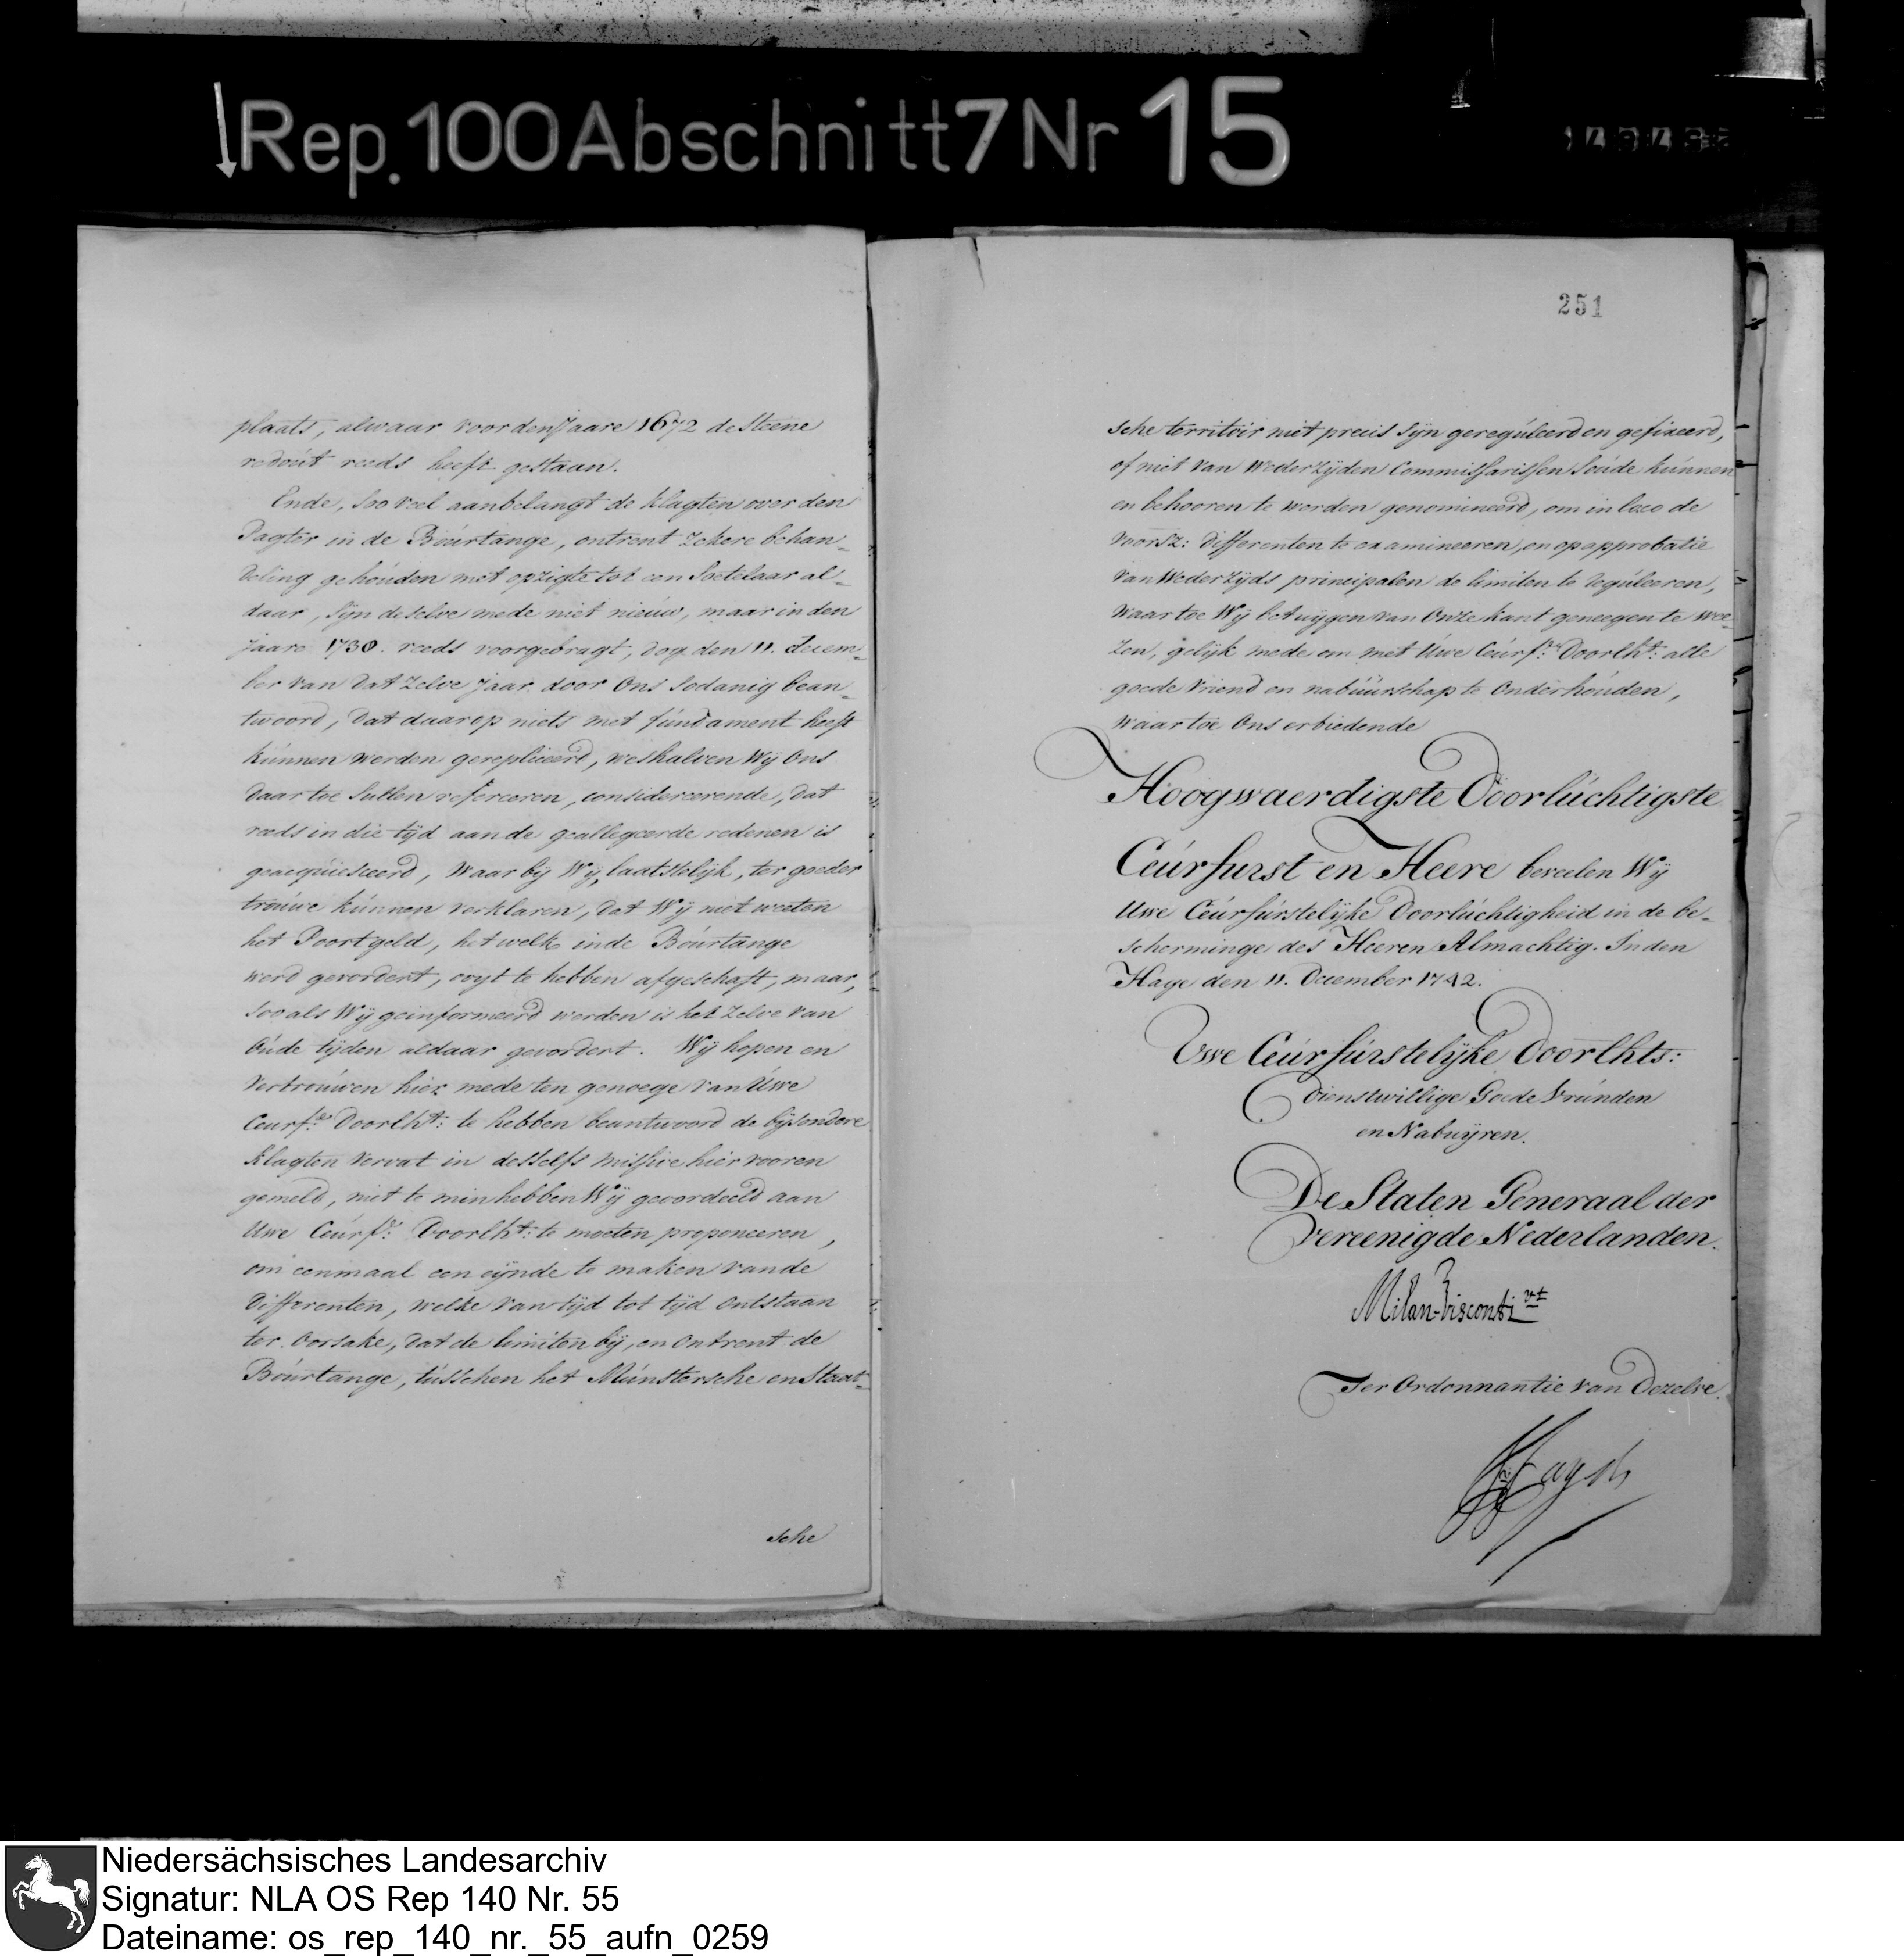 Rep. 100 Abschnitt 7 Nr 15
plaats, alwaar voor den Jaare 1672 de Steene
redout reeds heeft gestaan.
Ende, soo veel aanbelangt de klagten over den
Pagter in de Boúrtange, ontrent zekere behan-
deling gehoúden met opzigte tot een Soetelaar al-
daar, sÿn deselve mede niet nieúw, maar in den
Jaare 1730. reeds voorgebragt, dog den 11. decem-
ber van dat zelve Jaar door Ons sodanig bean-
twoord, dat daarop niets met fúndament heeft
kúnnen werden gerepliceerd, weshalven Wÿ Ons
daar toe sullen refereeren, considereerende, dat
reeds in die tÿd aan de geallegeerde redenen is
geacquiesceerd, Waar bÿ Wÿ, laatstelÿk, ter goeder
troúwe kúnnen verklaren, dat Wÿ niet weeten
het Poortgeld, het welk in de Boúrtange
werd gevordert, ooyt te hebben afgeschaft, maar,
soo als Wÿ geinformeerd werden is het zelve van
Oúde tÿden aldaar gevordert. Wÿ hopen en
vertroúwen hier mede ten genoege van Úwe
Ceurf.e Doorlht: te hebben beantwoord de bÿsondere
klagten vervat in desselfs missive hier vooren
gemeld, niet te min hebben Wÿ geoordeeld aan
Uwe Ceúrf.e: Doorlht: te moeten proponeeren,
om eenmaal een eÿnde te maken van de
differenten, welke van tÿd tot tÿd ontstaan
ter oorsake, dat de limiten bÿ, en ontrent de
Boúrtange, tússchen het Múnstersche en Staat-
sche
251
sche territoir niet precis sÿn geregúleerd en gefixeerd,
of niet van wederzÿden Commissarissen soúde kúnnen
en behooren te worden genomineerd, om in loco de
voorsz: differenten te examineeren, en op approbatie
van Wederzÿds principalen de limiten te regúleeren,
waar toe Wÿ betuÿgen van Onze kant geneegen te wee-
zen, gelÿk mede om met Úwe Ceúrf.e: Doorlht: alle
goede vriend en nabúúrschap te Onderhoúden,
waar toe Ons erbiedende
Hoogwaerdigste Doorlúchtigste
Ceúrfurst en Heere beveelen Wÿ
Uwe Ceúrfúrstelÿke Doorlúchtigheid in de be-
scherminge des Heeren Almachtig. In den
Hage den 11. December 1742.
Uwe Ceúrfúrstelÿke Doorlhts:
Dienstwillige Goede Vrúnden
en Nabuÿren.
De Staten Generaal der
Vereenigde Nederlanden.
Milan-Visconti vt
Ter Ordonnantie van Dezelve.
Niedersächsisches Landesarchiv
Signatur: NLA OS Rep 140 Nr. 55
Dateiname: os_rep_140_nr._55_aufn_0259